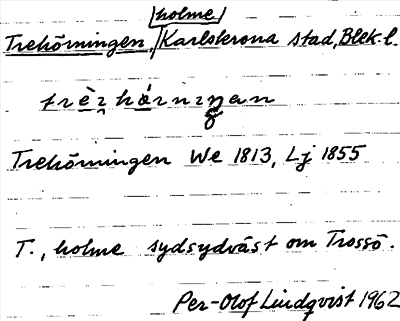 /holme/
Trehörningen, Karlskrona stad, Blek. l.
Trehörningen We 1813, Lj 1855
T., holme sydsydväst om Trossö.
Per-Olof Lindqvist 1962